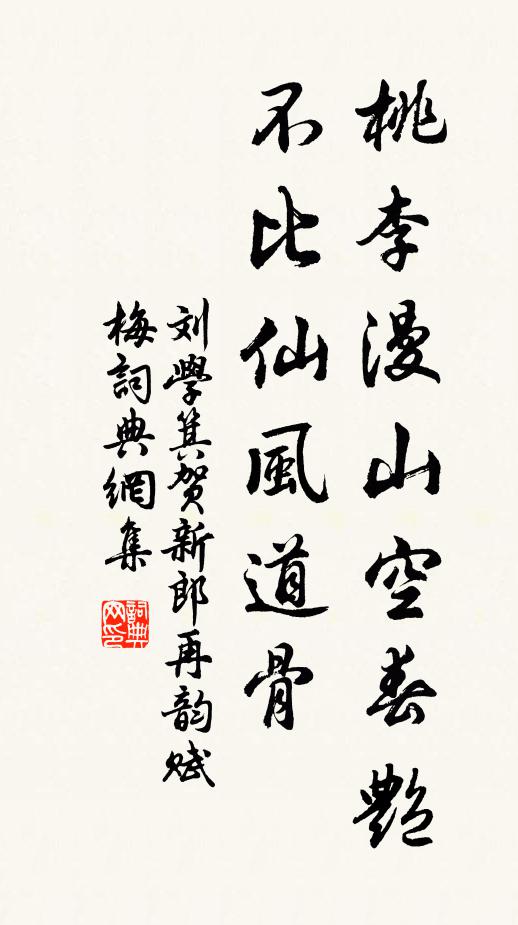 桃李漫山空春艷
不比仙風道骨
刘學箕賀新郎再韵赋
梅詞典網集
詞典
网印